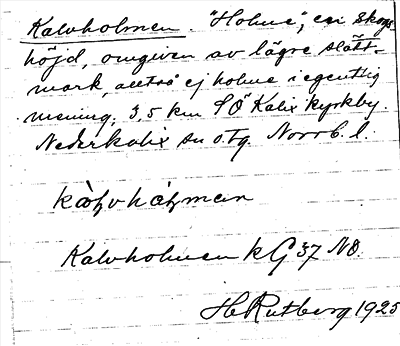 Kalvholmen. "Holme", en skogs-
höjd, omgiven av lägre slätt-
mark, alltså ej holme i egentlig
mening; 3,5 km SÖ Kalix kyrkby.
Nederkalix sn o. tg. Norrb. l.
Kalvholmen k G 37 NO.
H Rutberg 1925